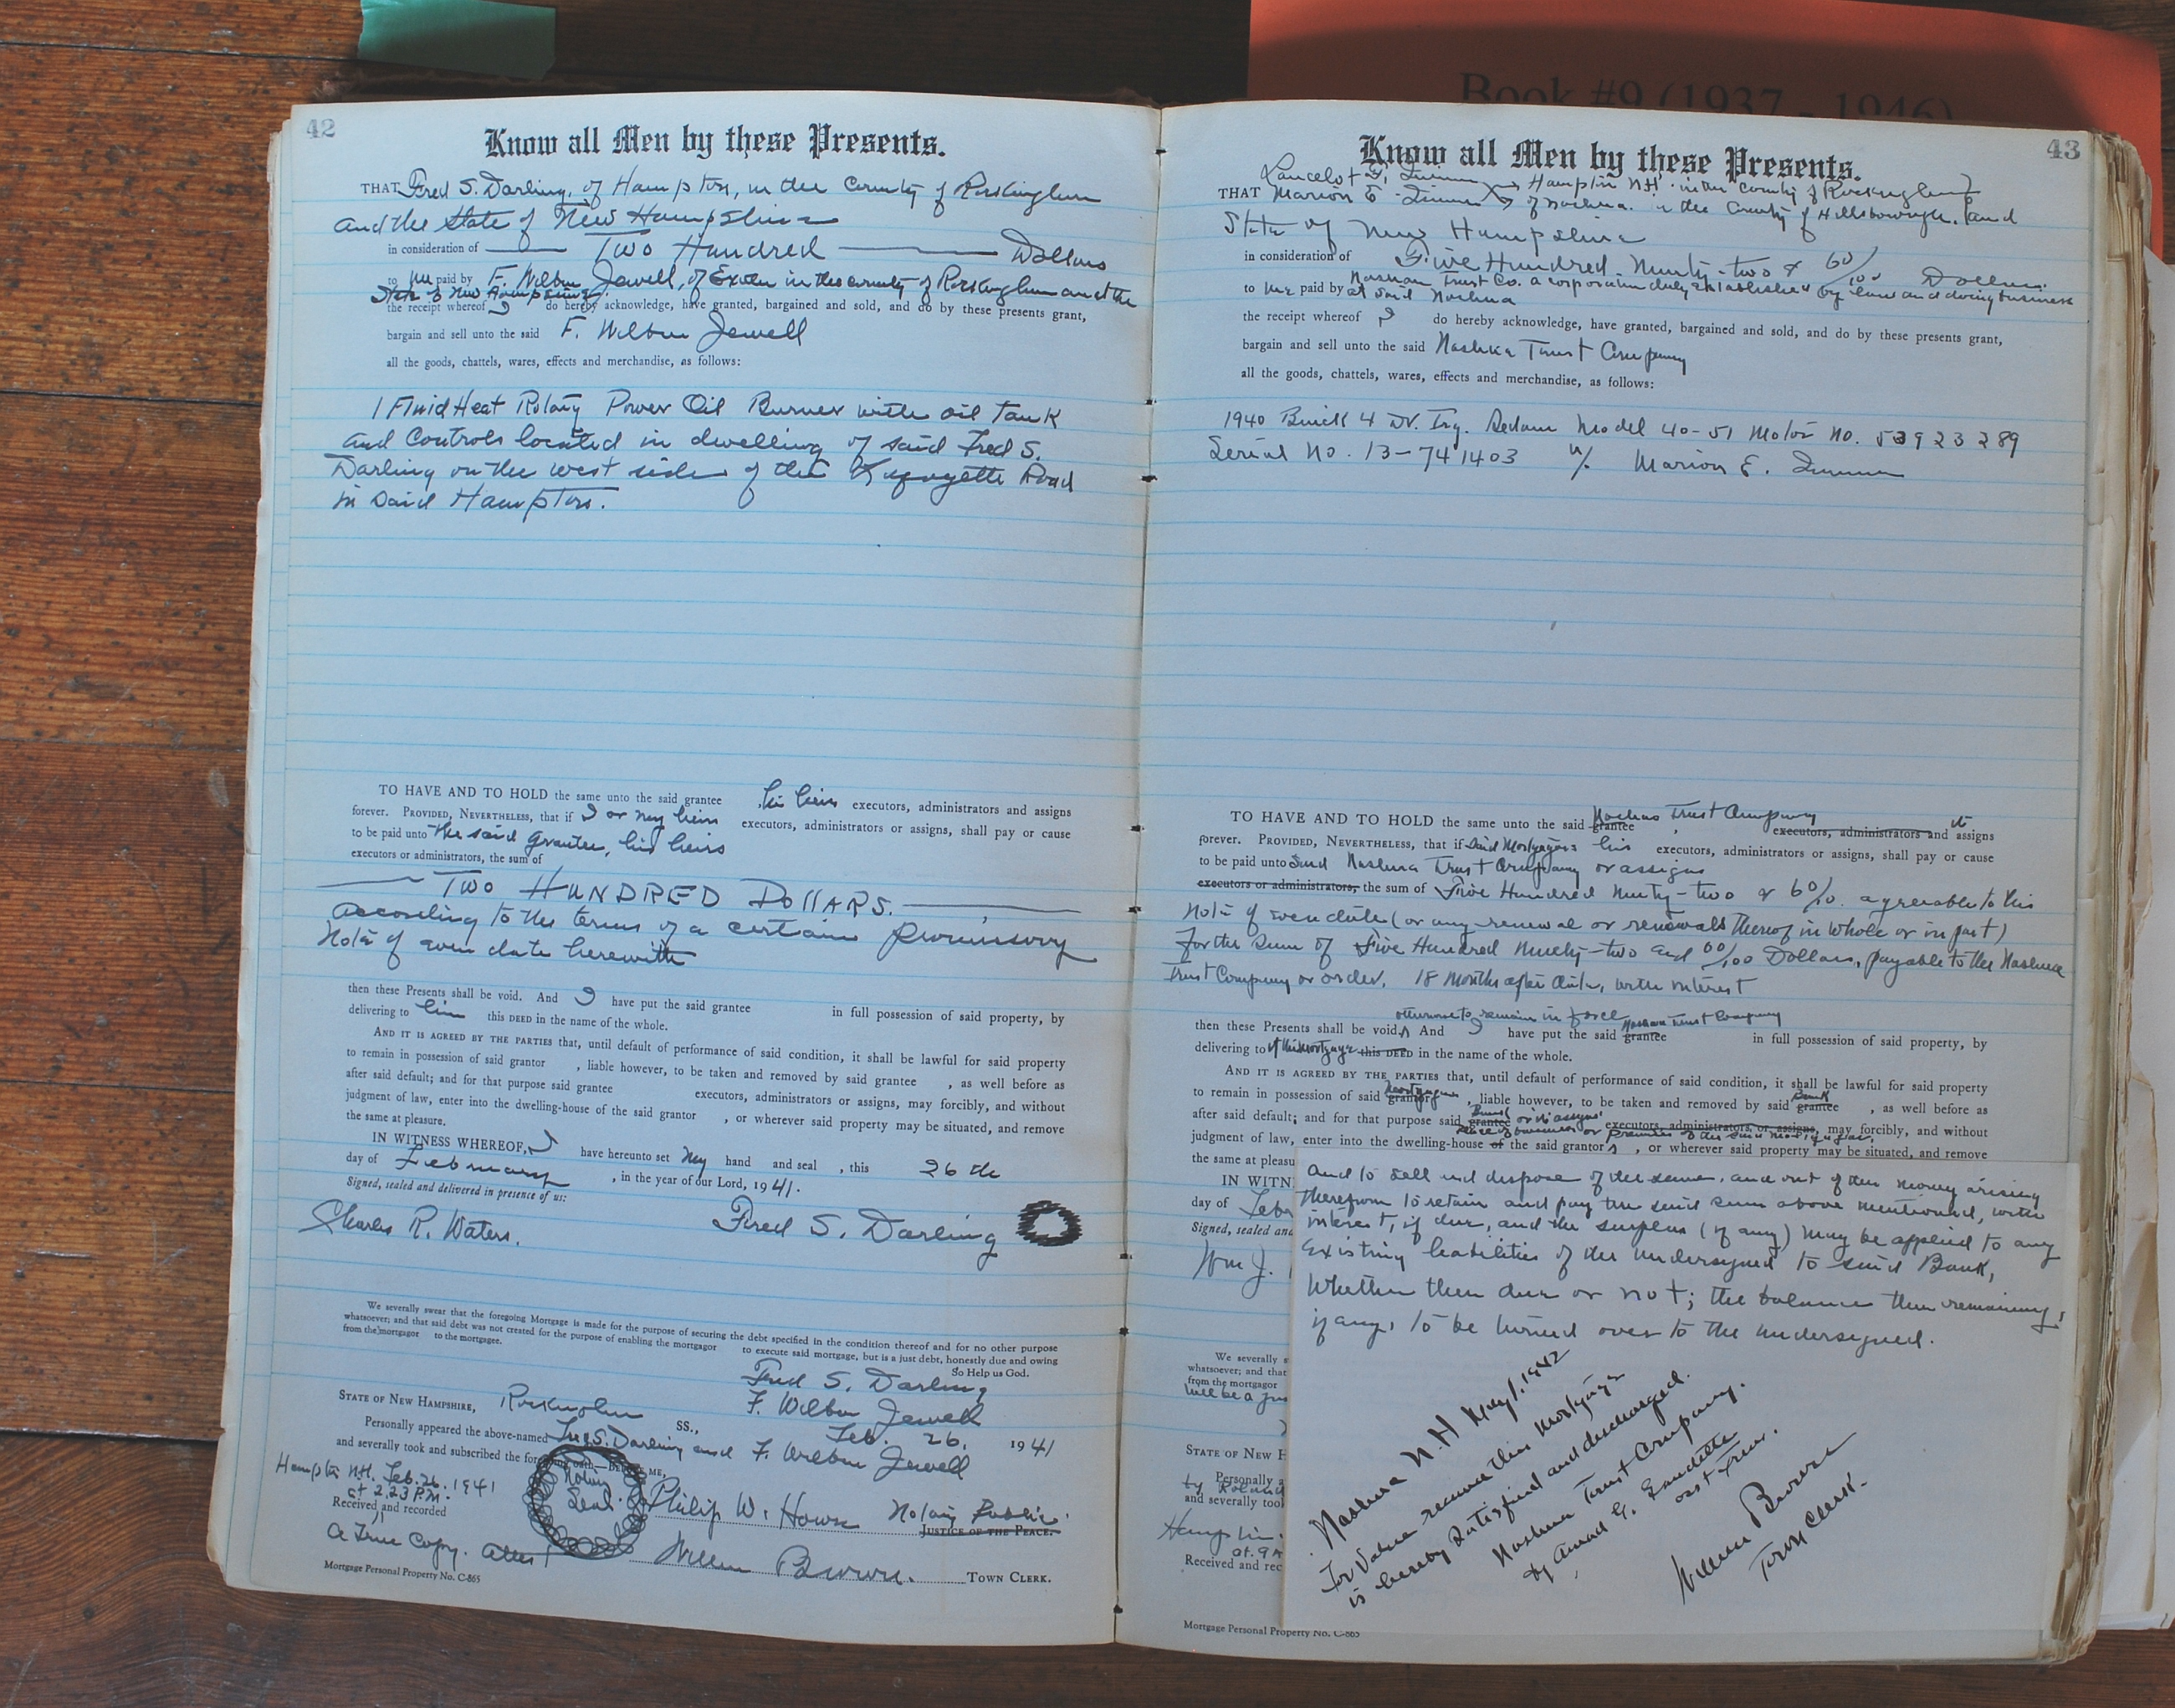 Book #9 (1937 - 1946)
42
Know all Men by these Presents.
THAT Fred S. Darling, of Hampton, in the County of Rockingham
and the State of New Hampshire
in consideration of Two Hundred Dollars
to me paid by F. Wilbur Jewell, of Exeter in the county of Rockingham and the
State of New Hampshire
the receipt whereof I do hereby acknowledge, have granted, bargained and sold, and do by these presents grant,
bargain and sell unto the said F. Wilbur Jewell
all the goods, chattels, wares, effects and merchandise, as follows:
1 Fluid Heat Rotary Power Oil Burner with oil tank
and Controls located in dwelling of said Fred S.
Darling on the west side of the Lafayette Road
in Said Hampton.
TO HAVE AND TO HOLD the same unto the said grantee his heirs executors, administrators and assigns
forever. PROVIDED, NEVERTHELESS, that if I or my heirs executors, administrators or assigns, shall pay or cause
to be paid unto the said Grantee, his heirs
executors or administrators, the sum of
TWO HUNDRED DOLLARS.
According to the terms of a certain promissory
Note of even date herewith
then these Presents shall be void. And I have put the said grantee in full possession of said property, by
delivering to him this DEED in the name of the whole.
AND IT IS AGREED BY THE PARTIES that, until default of performance of said condition, it shall be lawful for said property
to remain in possession of said grantor , liable however, to be taken and removed by said grantee , as well before as
after said default; and for that purpose said grantee executors, administrators or assigns, may forcibly, and without
judgment of law, enter into the dwelling-house of the said grantor , or wherever said property may be situated, and remove
the same at pleasure.
IN WITNESS WHEREOF, I have hereunto set my hand and seal , this 26 th
day of February , in the year of our Lord, 1941.
Signed, sealed and delivered in presence of us:
Charles R. Waters. Fred S. Darling
We severally swear that the foregoing Mortgage is made for the purpose of securing the debt specified in the condition thereof and for no other purpose
whatsoever; and that said debt was not created for the purpose of enabling the mortgagor to execute said mortgage, but is a just debt, honestly due and owing
from the mortgagor to the mortgagee. So Help us God.
Fred S. Darling
F. Wilbur Jewell
STATE OF NEW HAMPSHIRE, Rockingham SS., Feb. 26, 1941
Personally appeared the above-named Fred S. Darling and F. Wilbur Jewell
and severally took and subscribed the foregoing oath—BEFORE ME,
Hampton N.H. Feb. 26, 1941
at 2.23 P.M.
Notary Seal.
Philip W. Notary Public.
JUSTICE OF THE PEACE.
Received and recorded
A True Copy. Attest William Brown. TOWN CLERK.
Mortgage Personal Property No. C-865
43
Know all Men by these Presents.
Lancelot Hampton NH in the County of Rockingham
THAT Marion E. of Nashua in the County of Hillsborough and
State of New Hampshire
in consideration of Five Hundred Ninety-two & 60/100 Dollars
to me paid by Nashua Trust Co. a corporation duly established by law and doing business
at said Nashua
the receipt whereof I do hereby acknowledge, have granted, bargained and sold, and do by these presents grant,
bargain and sell unto the said Nashua Trust Company
all the goods, chattels, wares, effects and merchandise, as follows:
1940 Buick 4 Dr. Trg. Sedan Model 40-51 Motor No. 53923289
Serial No. 13-741403 Marion E.
TO HAVE AND TO HOLD the same unto the said grantee Nashua Trust Company executors, administrators and its assigns
forever. PROVIDED, NEVERTHELESS, that if Said Mortgagors his executors, administrators or assigns, shall pay or cause
to be paid unto Said Nashua Trust Company or assigns
executors or administrators, the sum of Five Hundred Ninety-two & 60/100. agreeable to this
Note of even date (or any renewal or renewals thereof in whole or in part)
For the sum of Five Hundred Ninety-two and 60/100 Dollars, payable to the Nashua
Trust Company or order. 18 Months after date, with interest
otherwise to remain in force
then these Presents shall be void And I have put the said grantee Nashua Trust Company in full possession of said property, by
delivering to this DEED in the name of the whole.
AND IT IS AGREED BY THE PARTIES that, until default of performance of said condition, it shall be lawful for said property
to remain in possession of said grantor , liable however, to be taken and removed by said grantee Bank , as well before as
after said default; and for that purpose said grantee Bank or its assigns executors, administrators, or assigns, may forcibly, and without
place of business or premises of the said mortgagor
judgment of law, enter into the dwelling-house of the said grantors , or wherever said property may be situated, and remove
the same at pleasu
IN WITN
day of Febr
Signed, sealed an
Wm J.
And to sell and dispose of the same, and out of the money arising
therefrom to retain and pay the said sum above mentioned, with
interest, if due, and the surplus (if any) may be applied to any
existing liabilities of the undersigned to said Bank,
Whether then due or not; the balance then remaining,
if any, to be turned over to the undersigned.
We severally
whatsoever; and that
from the mortgagor
will be a
STATE OF NEW H
Personally a
by Roland
and severally took
Hampton.
at. 9 A
Received and rec
Nashua N.H May 1, 1942
For Value received this Mortgage
is hereby Satisfied and discharged.
Nashua Trust Company.
by G. Gaudette
asst Treas.
William Brown
Town Clerk.
Mortgage Personal Property No. C-865